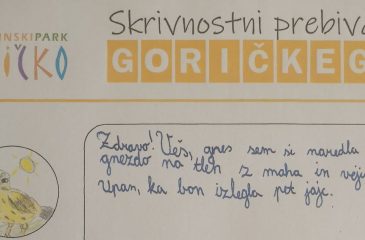 INSKIPARK
IČKO
Skrivnostni prebiva
GORIČKEG
Zdravo! Veš, gnes sem si naredla
gnezdo na tleh z maha in vejic
Upan, ka bon izlegla pet jajc.